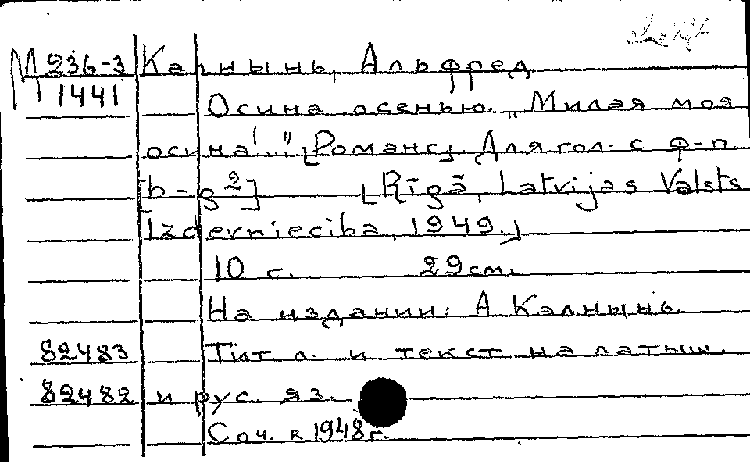 М 236-3 Калнынь, Альфред
1441 Осина осенью. "Милая моя
осина!.." [Романс]. Для гол. с ф-п.
[b - g²] [Rīgā, Latvijas Valsts
Izdevniecība, 1949.]
10 с. 29 см.
На издании: А Калнынь.
82483 Тит л. и текст на латыш.
82482 и рус. яз.
Соч. в 1948 г.